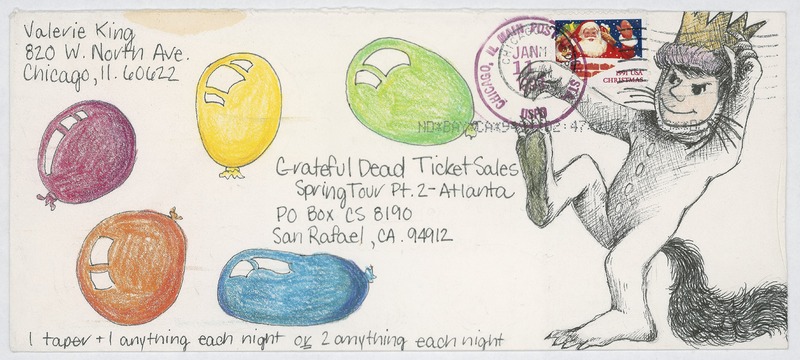 Valerie King
820 W. North Ave.
Chicago, Il. 60622
CHICAGO, IL MAIN POST
JAN
11
USPO
1991 USA
CHRISTMAS
Grateful Dead Ticket Sales
Spring Tour Pt. 2-Atlanta
PO Box CS 8190
San Rafael, CA. 94912
1 taper + 1 anything each night or 2 anything each night